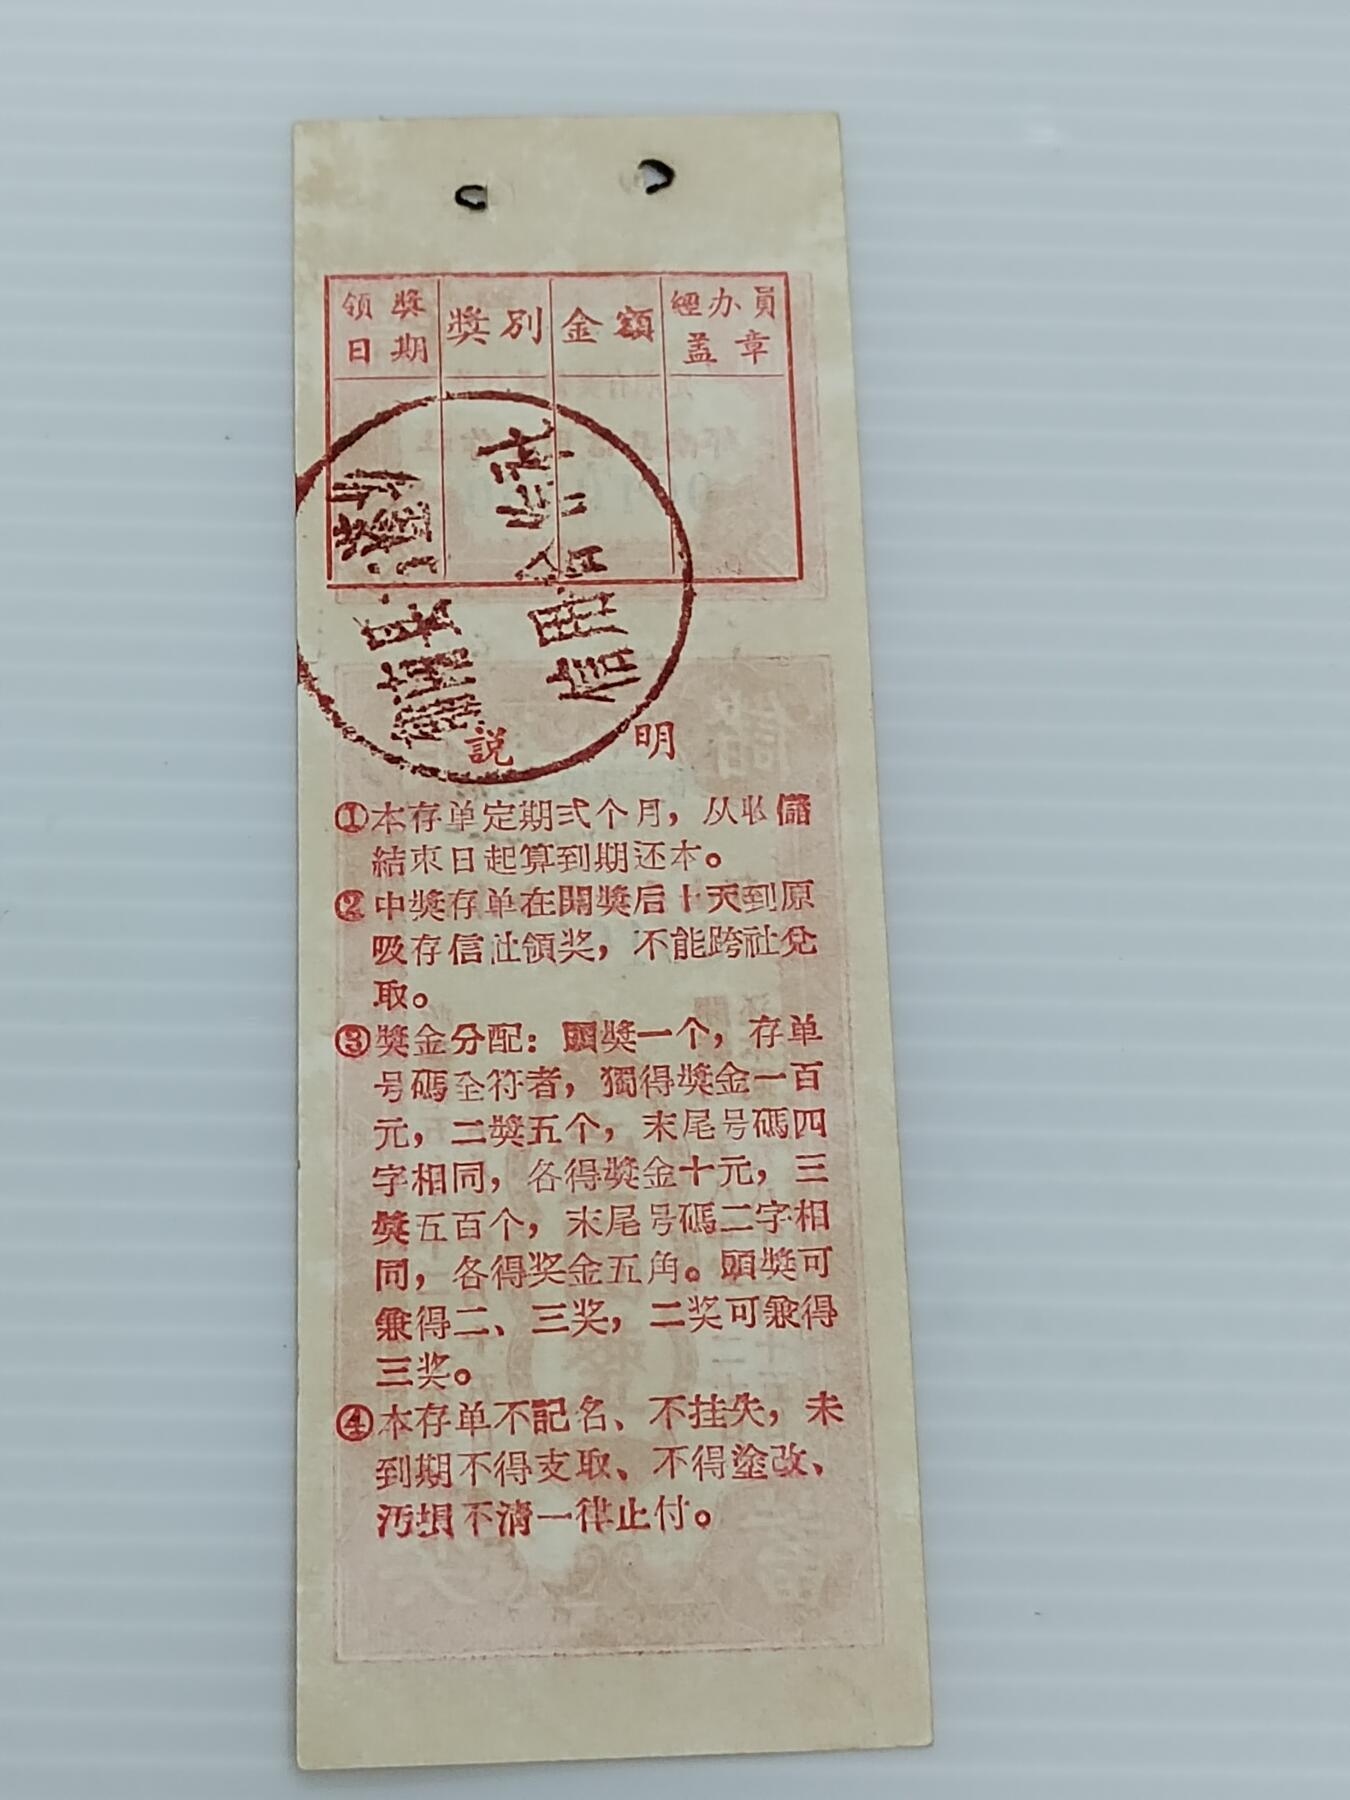 领獎日期
獎别
金額
經办員盖章
信用
説 明
①本存单定期弍个月，从收儲
結束日起算到期还本。
②中獎存单在開獎后十天到原
吸存信社領奖，不能跨社兌
取。
③獎金分配：頭獎一个，存单
号碼全符者，獨得獎金一百
元，二獎五个，末尾号碼四
字相同，各得獎金十元，三
獎五百个，末尾号碼二字相
同，各得奖金五角。頭獎可
兼得二、三奖，二奖可兼得
三奖。
④本存单不記名、不挂失，未
到期不得支取、不得塗改、
污損不清一律止付。